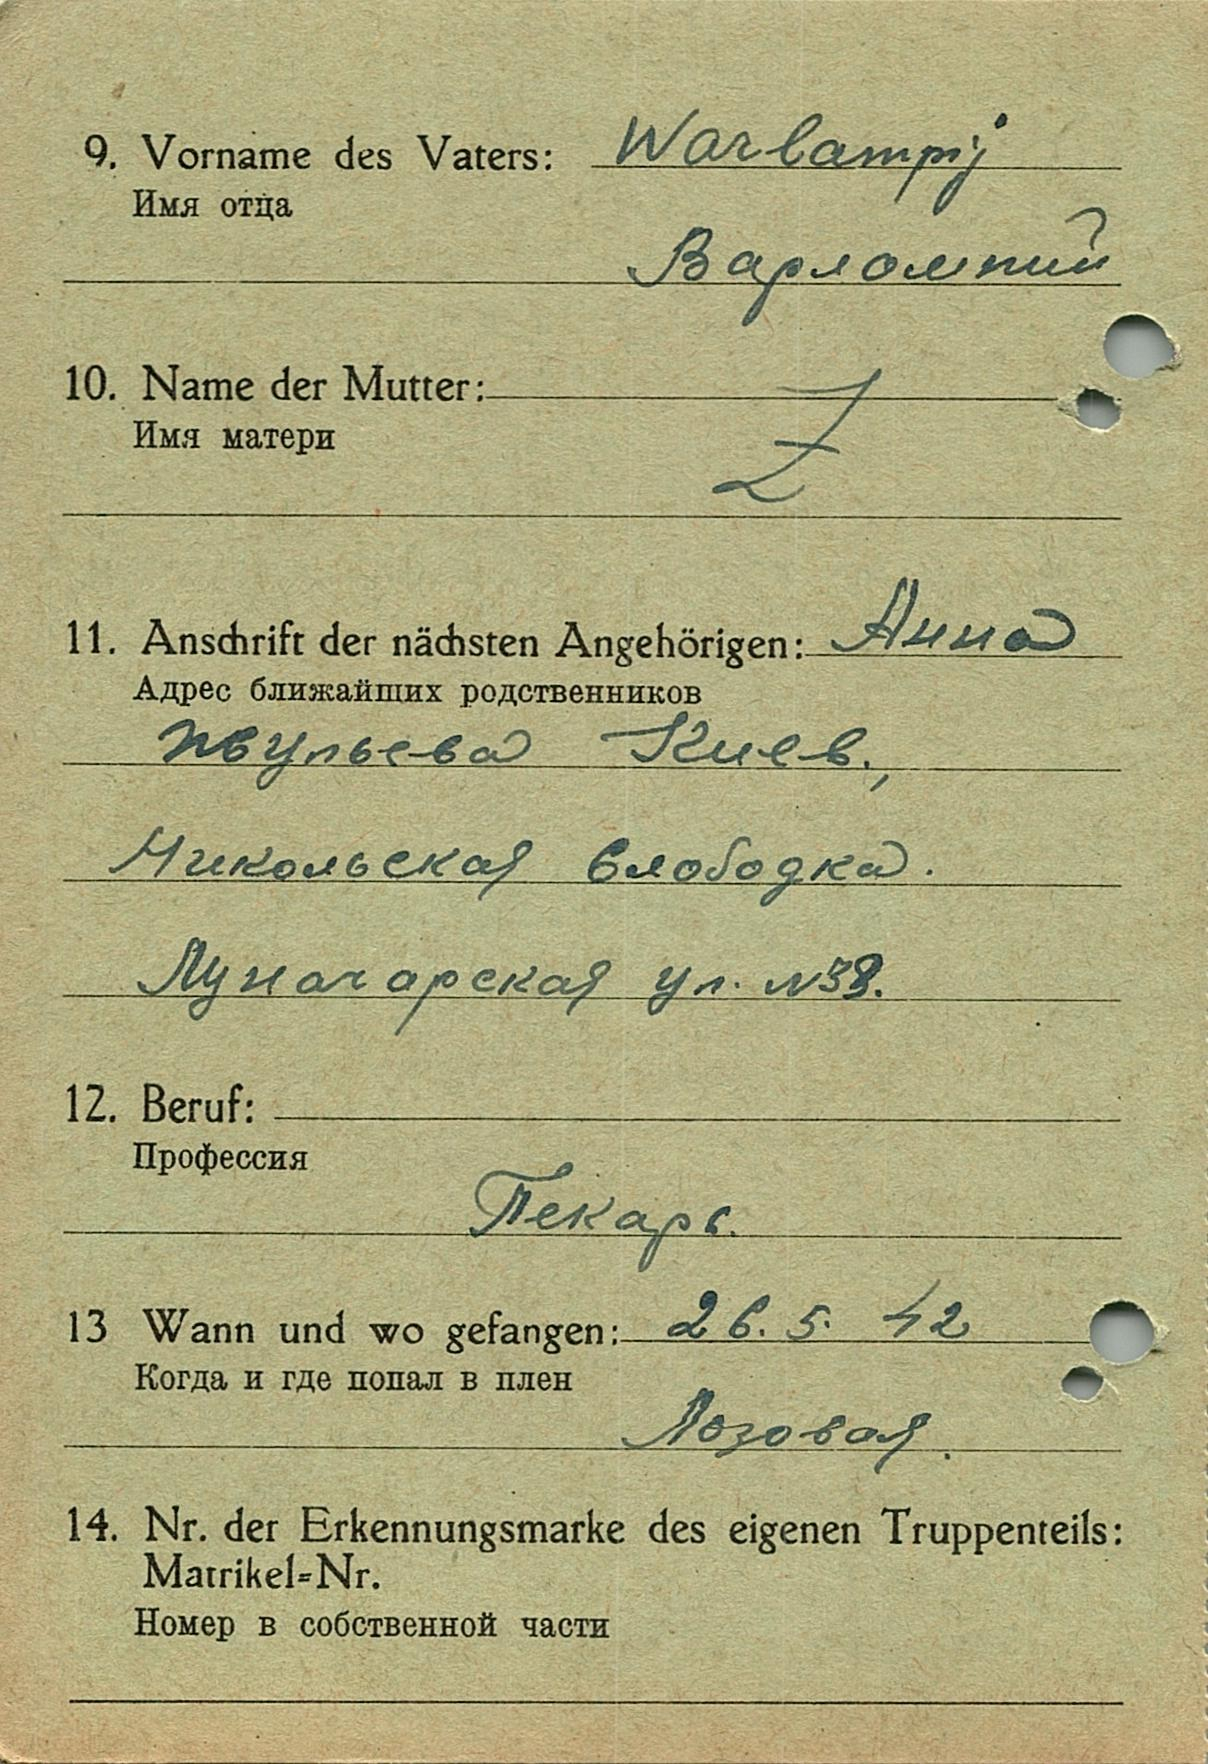 9. Vorname des Vaters: Warlampij
Имя отца
Варлампий
10. Name der Mutter:
Имя матери
11. Anschrift der nächsten Angehörigen: Анна
Адрес ближайших родственников
Киев.,
Никольская слободка.
Луначарская ул. №38.
12. Beruf:
Профессия
Пекарь.
13 Wann und wo gefangen: 26. 5. 42
Когда и где попал в плен
Лозовая.
14. Nr. der Erkennungsmarke des eigenen Truppenteils:
Matrikel=Nr.
Номер в собственной части